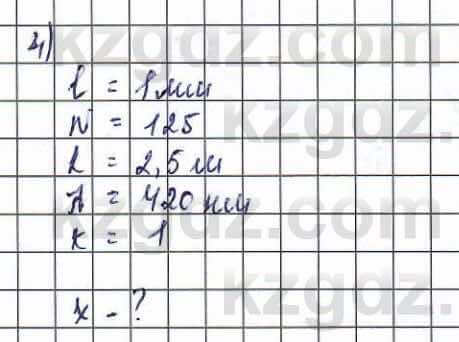 4)
kzgdz.com
l = 1 мм
N = 125
kzgdz.com
L = 2,5 м
λ = 420 нм
kzgdz.com
k = 1
x - ?
kzgdz.com